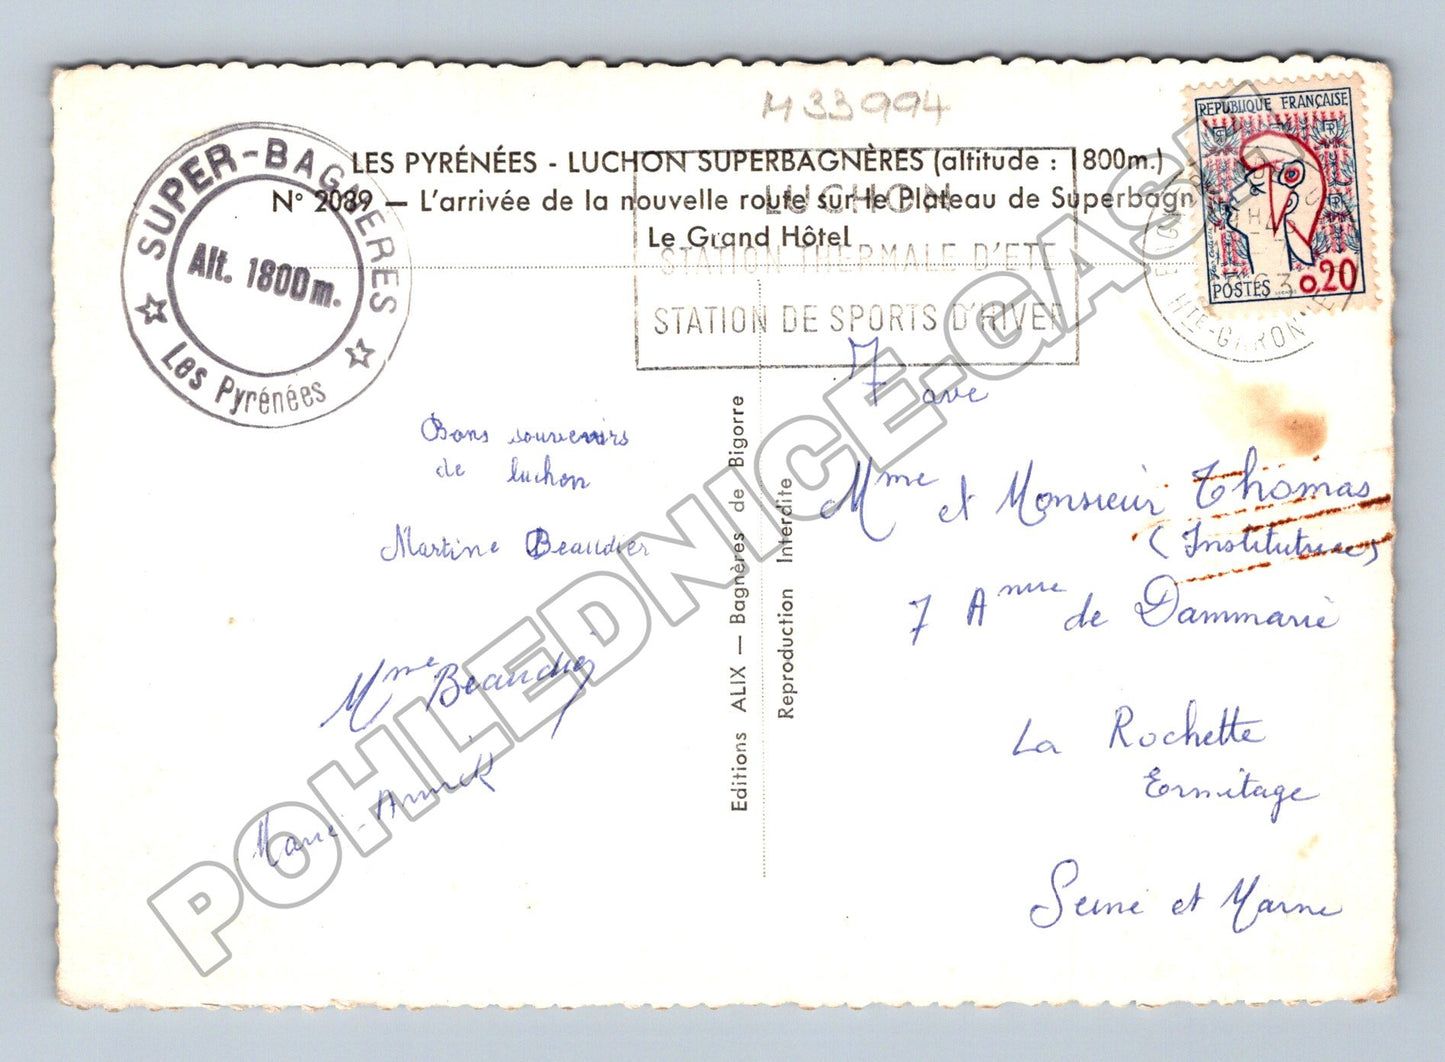 M33994
LES PYRÉNÉES - LUCHON SUPERBAGNÈRES (altitude : 1800m.)
N° 2089 — L'arrivée de la nouvelle route sur le Plateau de Superbagn
Le Grand Hôtel
SUPER-BAGNERES
Alt. 1800m.
Les Pyrénées
LUCHON
STATION THERMALE D'ETE
STATION DE SPORTS D'HIVER
REPUBLIQUE FRANÇAISE
POSTES 0,20
HTE-GARONNE
Bons souvenirs
de luchon
Martine Beaudier
Mme Beaudier
Marie-Annick
Editions ALIX — Bagnères de Bigorre
Reproduction Interdite
7 ave
Mme et Monsieur Thomas
(Institutrice)
7 A de Dammarie
La Rochette
Ermitage
Seine et Marne
POHLEDNICE-GASH